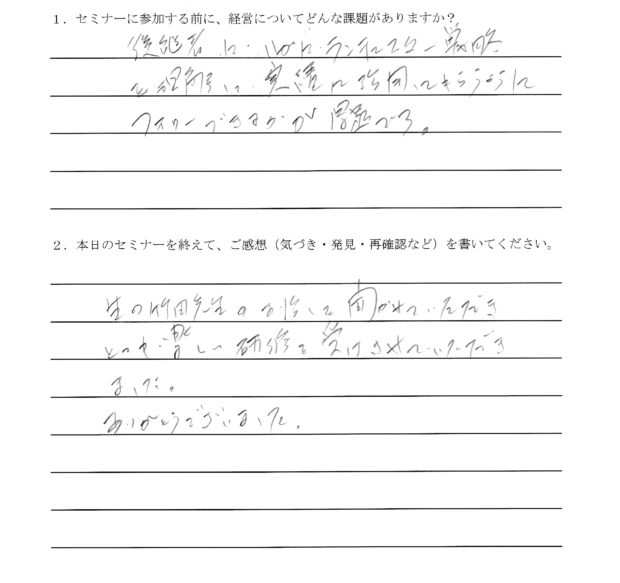 1．セミナーに参加する前に、経営についてどんな課題がありますか？
後継者に、いかにランチェスター戦略
を理解し、実績に活用してもらうように
フォローできるかが問題です。
2．本日のセミナーを終えて、ご感想（気づき・発見・再確認など）を書いてください。
生の竹田先生のお話しを聞かせていただき
とても楽しい研修を受けさせていただき
ました。
ありがとうございました。